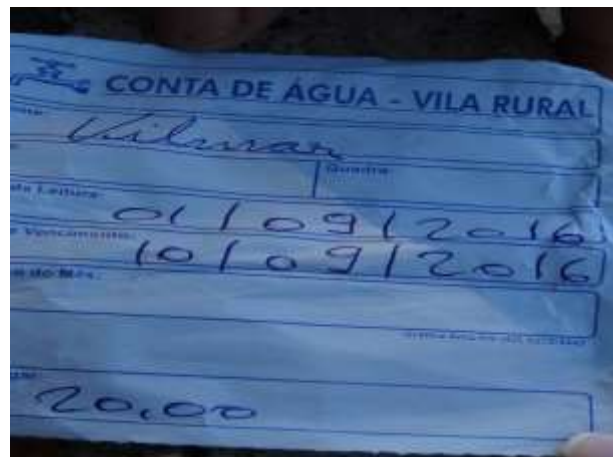 CONTA DE ÁGUA - VILA RURAL
Vilmar
Quadra:
da Leitura: 01/09/2016
Vencimento: 10/09/2016
do Mês:
20,00